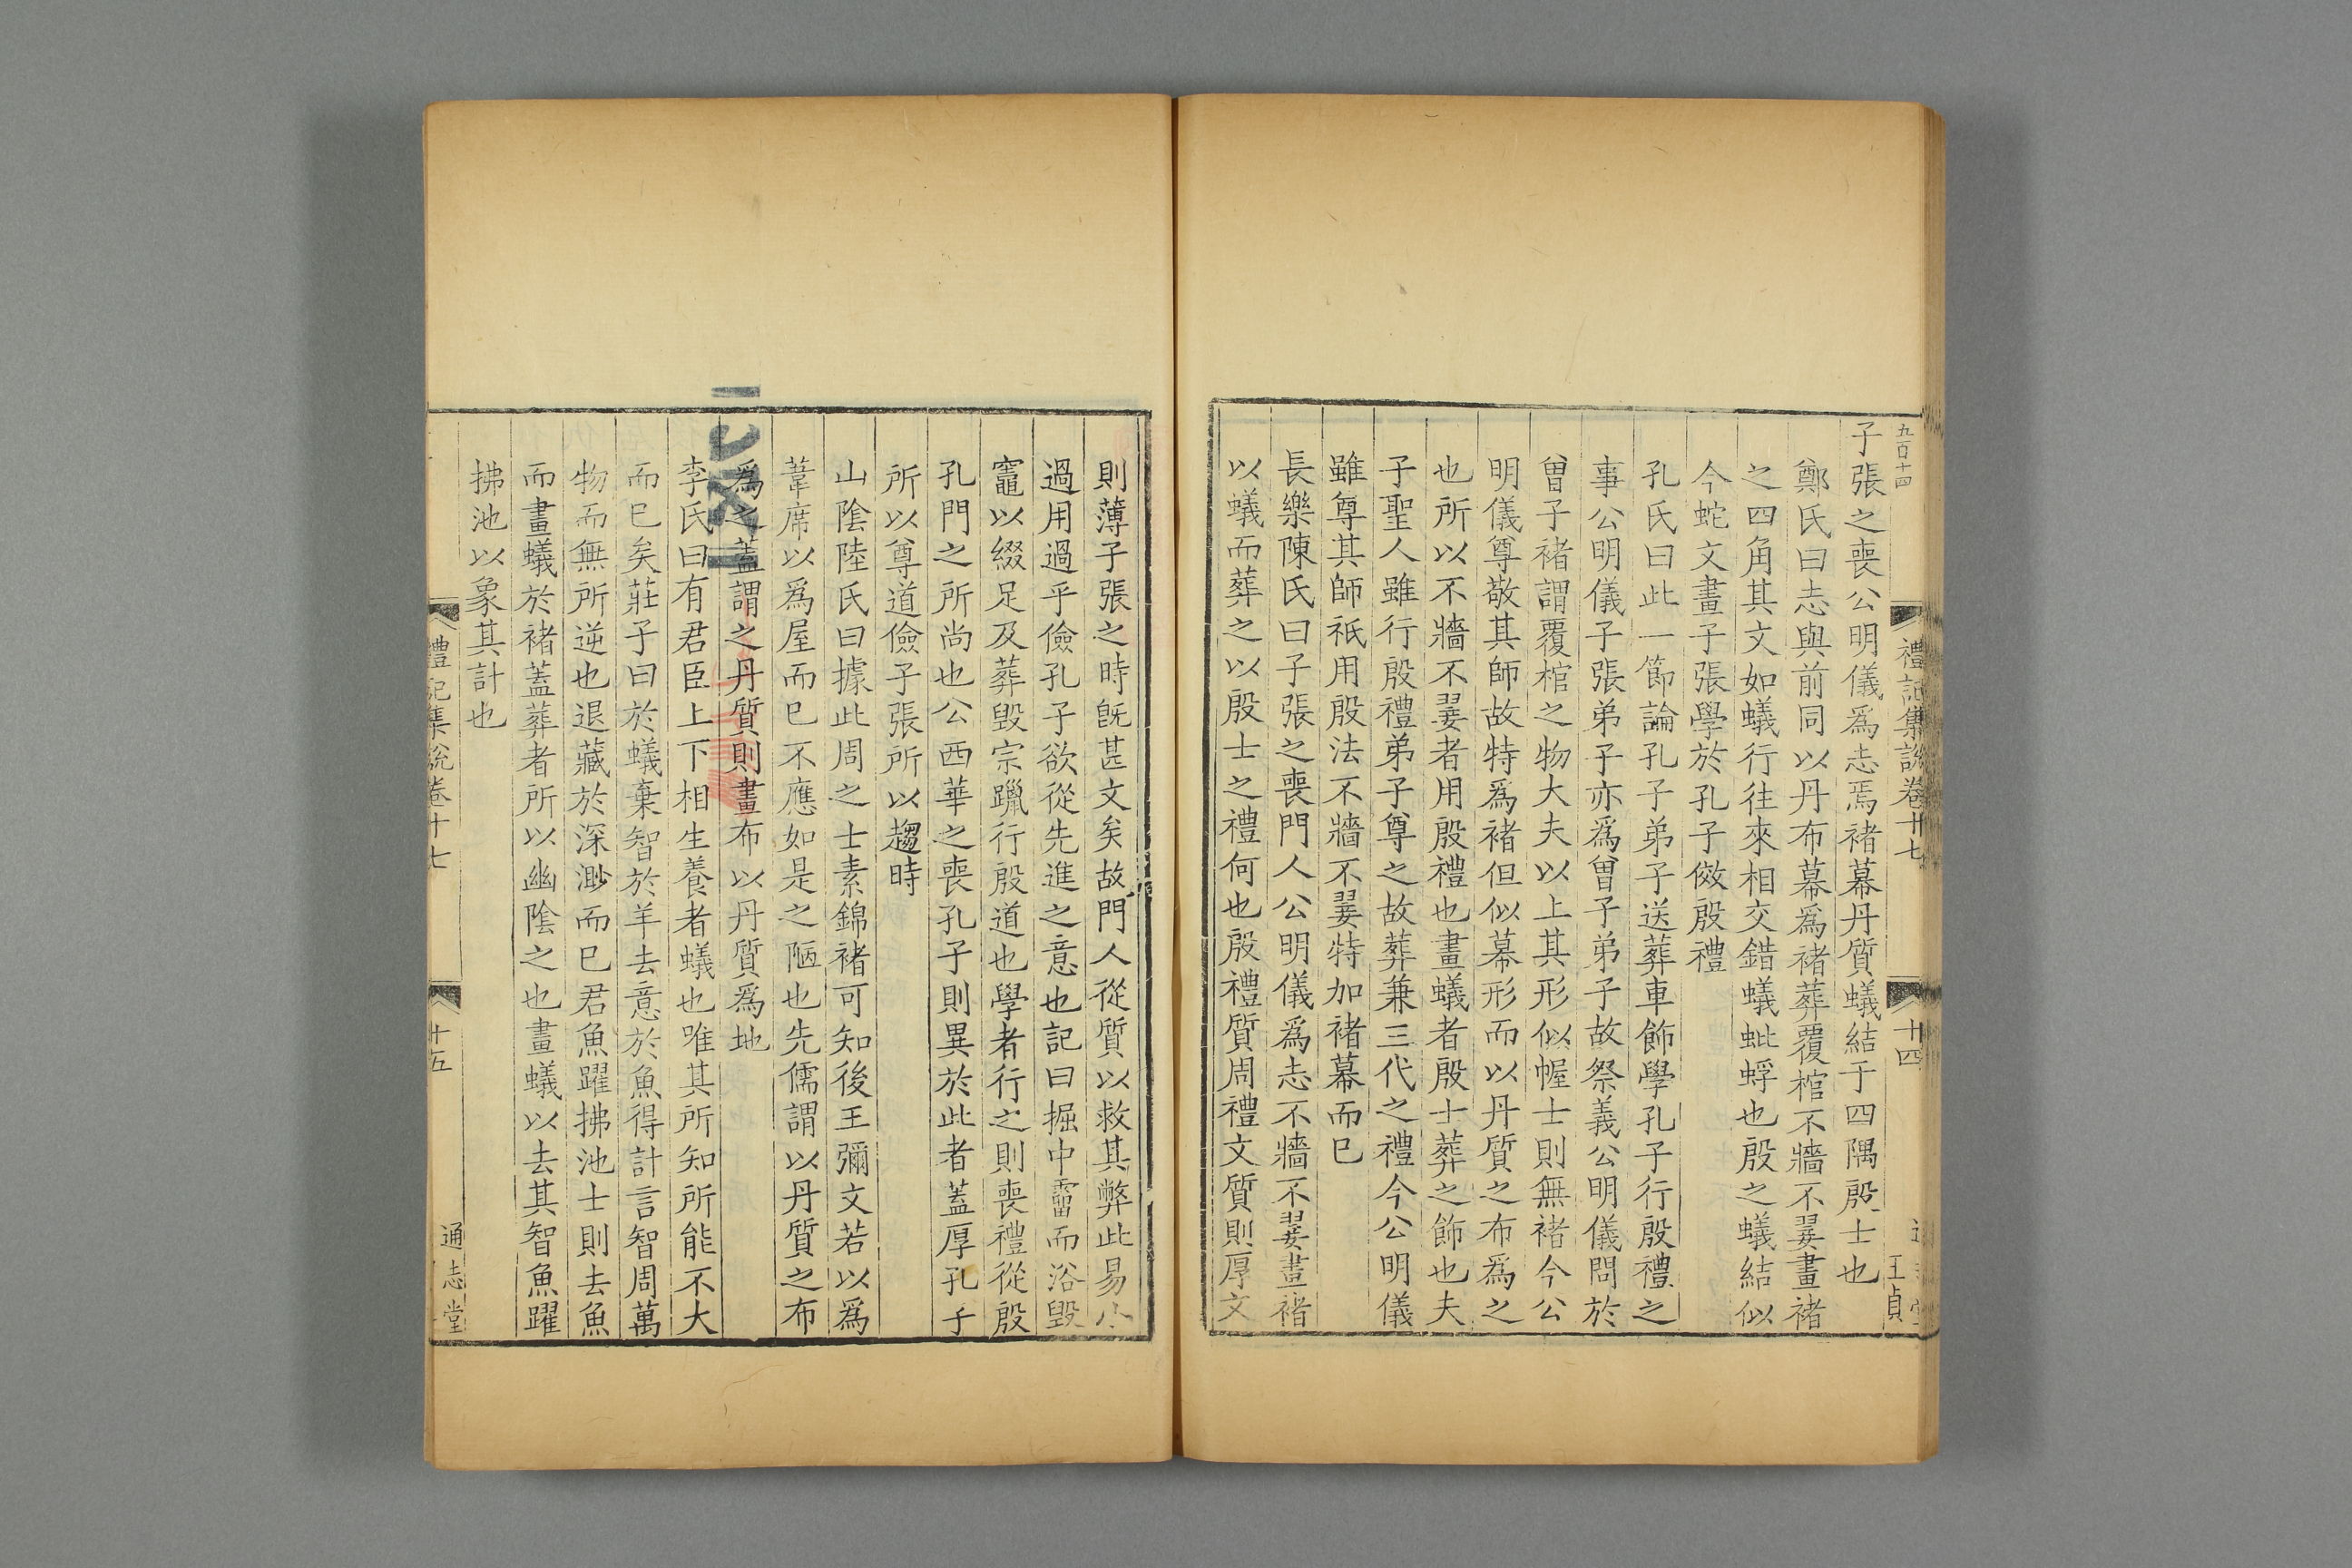 五百十四
禮記集説卷十七
十四
王貞
子張之喪公明儀爲志焉褚幕丹質蟻結于四隅殷士也
鄭氏曰志與前同以丹布幕爲褚葬覆棺不牆不翣畫褚
之四角其文如蟻行往來相交錯蟻蚍蜉也殷之蟻結似
今蛇文畫子張學於孔子傚殷禮
孔氏曰此一節論孔子弟子送葬車飾學孔子行殷禮之
事公明儀子張弟子亦爲曽子弟子故祭義公明儀問於
曽子褚謂覆棺之物大夫以上其形似幄士則無褚今公
明儀尊敬其師故特爲褚但似幕形而以丹質之布爲之
也所以不牆不翣者用殷禮也畫蟻者殷士葬之飾也夫
子聖人雖行殷禮弟子尊之故葬兼三代之禮今公明儀
雖尊其師祇用殷法不牆不翣特加褚幕而已
長樂陳氏曰子張之喪門人公明儀爲志不牆不翣畫褚
以蟻而葬之以殷士之禮何也殷禮質周禮文質則厚文
則薄子張之時旣甚文矣故門人從質以救其弊此易小
過用過乎儉孔子欲從先進之意也記曰掘中霤而浴毀
竈以綴足及葬毀宗躐行殷道也學者行之則喪禮從殷
孔門之所尚也公西華之喪孔子則異於此者蓋厚孔子
所以尊道儉子張所以趨時
山陰陸氏曰據此周之士素錦褚可知後王彌文若以爲
葦席以爲屋而已不應如是之陋也先儒謂以丹質之布
爲之蓋謂之丹質則畫布以丹質爲地
李氏曰有君臣上下相生養者蟻也唯其所知所能不大
而已矣莊子曰於蟻棄智於羊去意於魚得計言智周萬
物而無所逆也退藏於深渺而已君魚躍拂池士則去魚
而畫蟻於褚蓋葬者所以幽陰之也畫蟻以去其智魚躍
拂池以象其計也
禮記集說卷十七
十五
通志堂